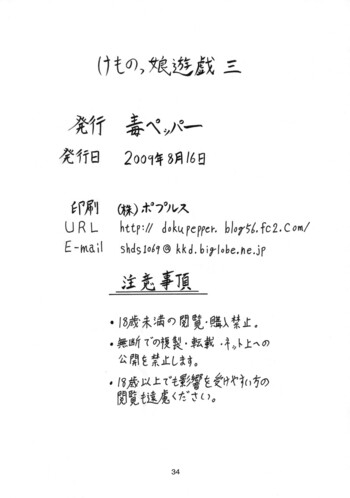 けものっ娘遊戯 三
発行 毒ペッパー
発行日 2009年8月16日
印刷 (株)ポプルス
URL http://dokupepper.blog56.fc2.com/
E-mail shds1069@kkd.biglobe.ne.jp
注意事項
・18歳未満の閲覧・購入禁止。
・無断での複製・転載・ネット上への
公開を禁止します。
・18歳以上でも影響を受けやすい方の
閲覧も遠慮ください。
34